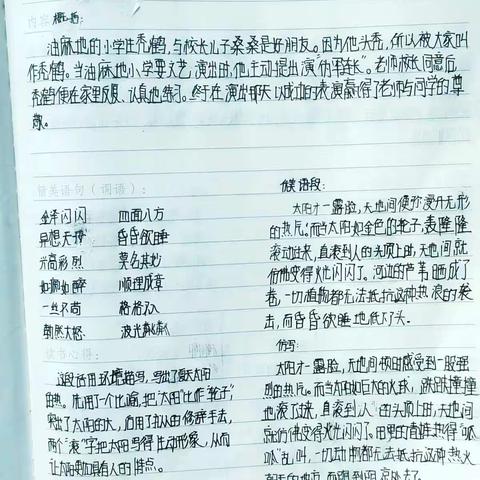 内容概括：
油麻地的小学生秃鹤，与校长儿子桑桑是好朋友。因为他头秃，所以被大家叫
作秃鹤。当油麻地小学要文艺演出时，他主动提出演"伪军连长"。老师校长同意后
秃鹤便在家里反复、认真地练习。终于在演出那天以成功的表演赢得了老师与同学的尊
敬。
精美语句（词语）：
金光闪闪 四面八方
异想天开 昏昏欲睡
兴高彩烈 莫名其妙
如痴如醉 顺理成章
一丝不苟 格格不入
勃然大怒 波光粼粼
读书心得：
这段话用环境描写，写出了夏天太阳
毒热。先用了一个比喻，把"太阳"比作"轮子"
突出了太阳的大，后用了拟人的修辞手法，
两个"滚"字把太阳写得生动形象，从而
让太阳更加具有人的特点。
优美语段：
太阳才一露脸，天地间便弥漫开无形
的热气。而当太阳如金色的轮子，轰隆隆
滚动过来，直滚到人的头顶上时，天地间就
仿佛变得火光闪闪了。河边的芦苇晒成了
卷，一切植物都无法抵抗这种热浪的袭
击，而昏昏欲睡地低下了头。
仿写：
太阳才一露脸，天地间顿时感受到一股强
烈的热气。而当太阳如巨大的火球，跌跌撞撞
地滚了过来，直滚到人的头顶上时，天地间
就仿佛变得火光闪闪了。田里的青蛙热得"呱
呱"乱叫，一切动物都无法抵抗这种热火